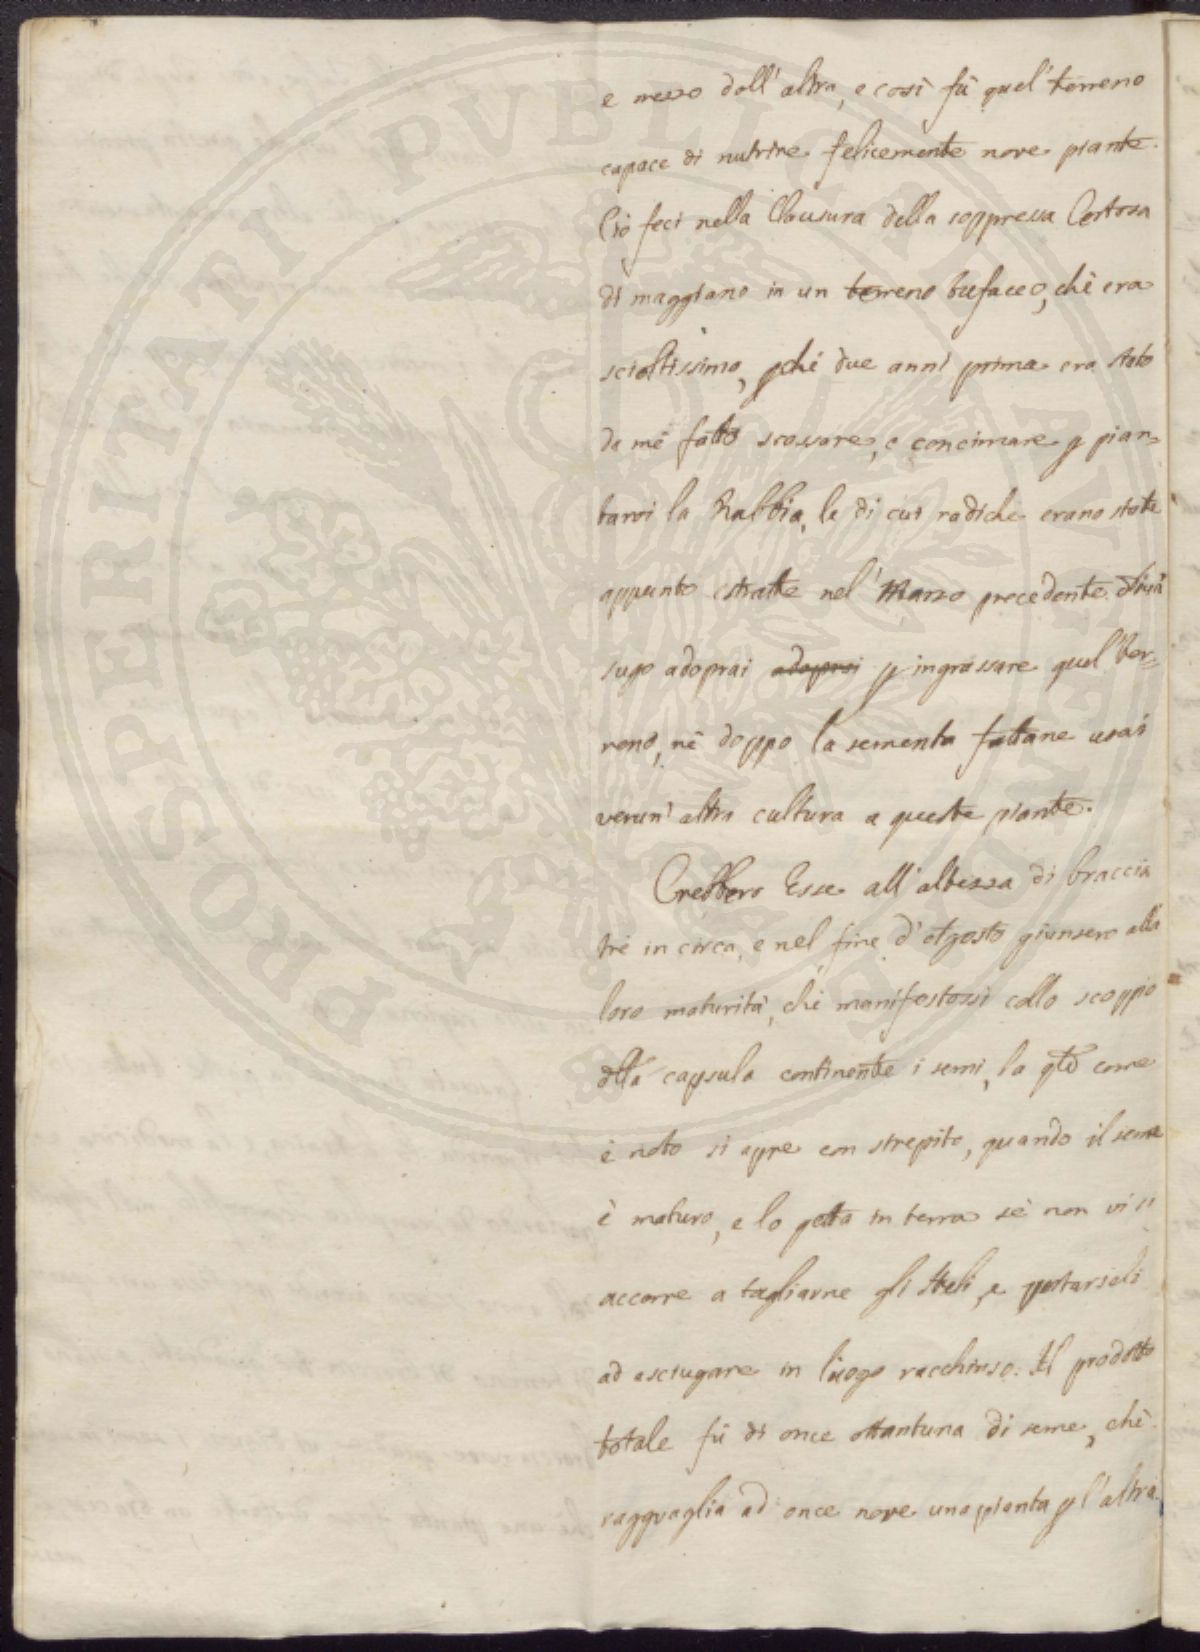 PROSPERITATI PVBLICAE AVGENDAE
e mezzo dall'altra, e così fù quel' terreno
capace di nutrire felicemente nove piante.
Ciò feci nella Clausura della soppressa Certosa
di maggiano in un terreno tufaceo, chè era
scioltissimo, pchè due anni prima era stato
da mè fatto scassare, e concimare p pian=
tarvi la Rabbia, le di cui radiche erano state
appunto estratte nel' Marzo precedente.
sugo adoprai adoprai p ingrassare quel ter=
reno, nè doppo la sementa fattane usai
verun' altra cultura a queste piante.
Crebbero Esse all'altezza di braccia
trè in circa, e nel fine d'Agosto giunsero alla
loro maturità, chè manifestossi collo scoppio
dlla capsula continente i semi, la qle come
è noto si apre con strepito, quando il seme
è maturo, e lo getta in terra sè non vi si
accorre a tagliarne gli steli, e portarseli
ad asciugare in luogo racchiuso. Il prodotto
totale fù di once ottantuna di seme, chè
ragguaglia ad once nove una pianta p l'altra.